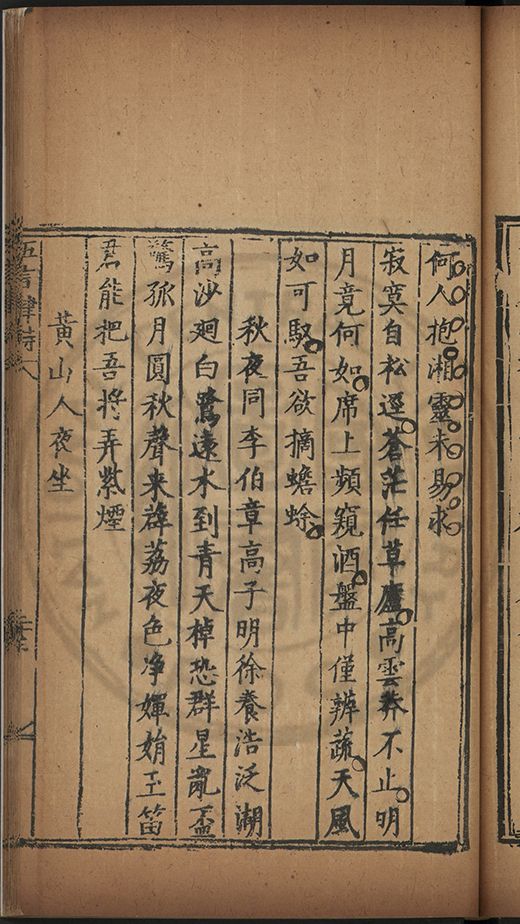 何人抱湘靈未易求
寂寞自松逕蒼茫任草廬高雲莽不止明
月竟何如席上頻窺酒盤中僅辨蔬天風
如可馭吾欲摘蟾蜍
秋夜同李伯章高子明徐養浩泛湖
高沙迴白鷺遠水到青天棹恐群星亂盃
驚孤月圓秋聲来薜荔夜色净嬋娟玉笛
君能把吾将弄紫煙
黃山人夜坐
五言律詩